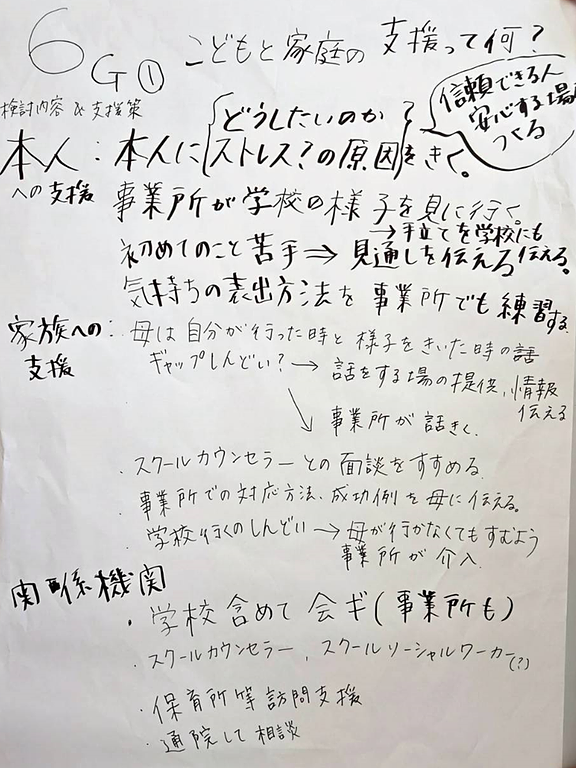 6G① こどもと家庭の支援って何?
検討内容 & 支援策
本人への支援:本人に{どうしたいのか ストレス?の原因}をきく。
信頼できる人
安心する場
つくる
事業所が学校の様子を見に行く。
→手立てを学校にも伝える。
初めてのこと苦手⇒見通しを伝える
気持ちの表出方法を事業所でも練習する
家族への支援:母は自分が行った時と様子をきいた時の話
ギャップしんどい?→話をする場の提供、情報伝える
↘事業所が話きく、
・スクールカウンセラーとの面談をすすめる
・事業所での対応方法、成功例を母に伝える。
・学校行くのしんどい→母が行かなくてもすむよう
事業所が介入
関係機関
・学校含めて会ギ(事業所も)
・スクールカウンセラー、スクールソーシャルワーカー(?)
・保育所等訪問支援
・通院して相談